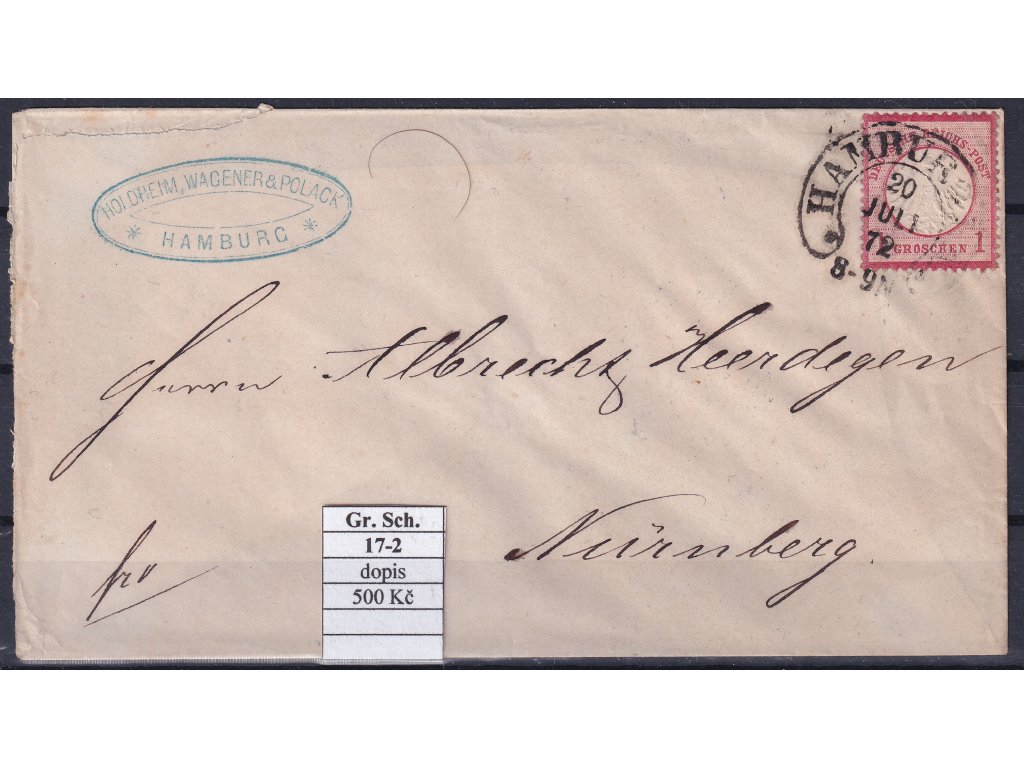 HOLDHEIM, WAGENER & POLACK
* HAMBURG *
HAMBURG
20
JULI
72
8-9N
1
GROSCHEN
Herrn Albrecht Heerdegen
Nürnberg.
fro
Gr. Sch.
17-2
dopis
500 Kč